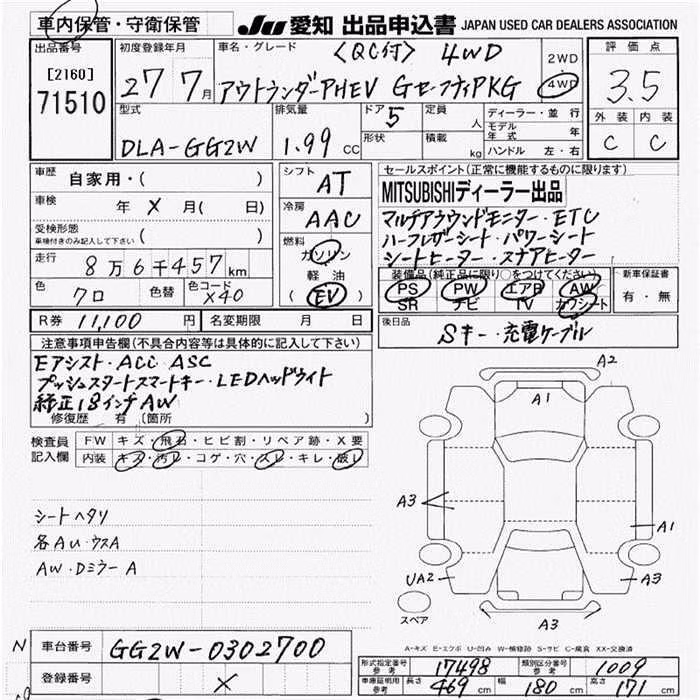 車内保管・守衛保管 JU 愛知 出品申込書 JAPAN USED CAR DEALERS ASSOCIATION
出品番号 初度登録年月 車名・グレード 〈QC付〉 4WD 2WD 評価点
[2160] 27 7月 アウトランダーPHEV GセーフティPKG 4WD 3.5
71510 型式 排気量 ドア 5 定員 人 ディーラー・並行 外装 内装
DLA-GG2W 1.99 CC 形状 積載 kg モデル年式 年 C C
ハンドル 左・右
車歴 自家用・( ) シフト AT セールスポイント(正常に機能するものに限ります)
車検 年 X 月( 日) 冷房 AAC MITSUBISHIディーラー出品
受検形態 ( ) マルチアラウンドモニター・ETC
車検付きのみ記入して下さい 燃料 ハーフレザーシート・パワーシート
走行 8万6千457km ガソリン シートヒーター・ステアヒーター
色 色替 色コード 軽油 装備品(純正品に限り○をつけてください) 新車保証書
クロ X40 (EV) PS PW エアB AW 有・無
SR ナビ TV カワシート
R券 11,100 円 名変期限 月 日 後日品
Sキー・充電ケーブル
注意事項申告欄(不具合内容等は具体的に記入して下さい)
Eアシスト・ACC ASC
プッシュスタートスマートキー・LEDヘッドライト
純正18インチAW
修復歴 有 〔箇所 〕
検査員記入欄 FW キズ・飛石・ヒビ割・リペア跡・X要
内装 キズ・汚レ・コゲ・穴・スレ・キレ・破レ
シートヘタリ
各AU・ウスA
AW・Dミラー A
A2
A1
A3
A1
UA2
A3
スペア
A3
A-キズ E-エクボ U-凹み W-補修跡 S-サビ C-腐食 XX-交換済
N 車台番号 GG2W-0302700
登録番号 X
形式指定番号 参考 17498 類別区分番号 参考 1009
車庫証明用 参考 長さ 469 cm 幅 180 cm 高さ 171 cm